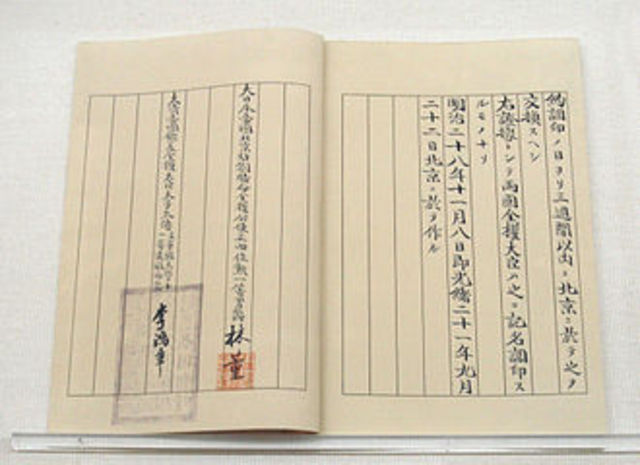 約調印ノ日ヨリ三週間以内ニ北京ニ於テ之ヲ
交換スヘシ
右證據トシテ両國全權大臣ハ之ニ記名調印ス
ルモノナリ
明治二十八年十一月八日即光緒二十一年九月
二十二日北京ニ於テ作ル
大日本帝國北京駐箚特命全權公使正四位勲一等男爵 林董
大清帝國欽差全權大臣太子太傅 李鴻章